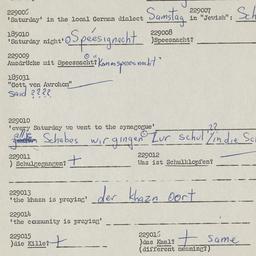 229006 229007
'Saturday' in the local German dialect Samstag in "Jewish": Sch
185010 229008
'Saturday night' Spēesignacht )Speesnacht?
229009
Ausdrücke mit Speesnacht?
185031
"Gott von Avrohom"
said ????
229010
'every Saturday we went to the synagogue'
Schabes wir gingen Zur schul ?? /in die Sc
229011 229012
) Schulgegangen? + Was ist Schulklopfen?
229013
'the khazn is praying' der khazn oort
229014
'the community is praying'
229015 229016
)die Kille? + )das Kaal? + same
(different meaning?)